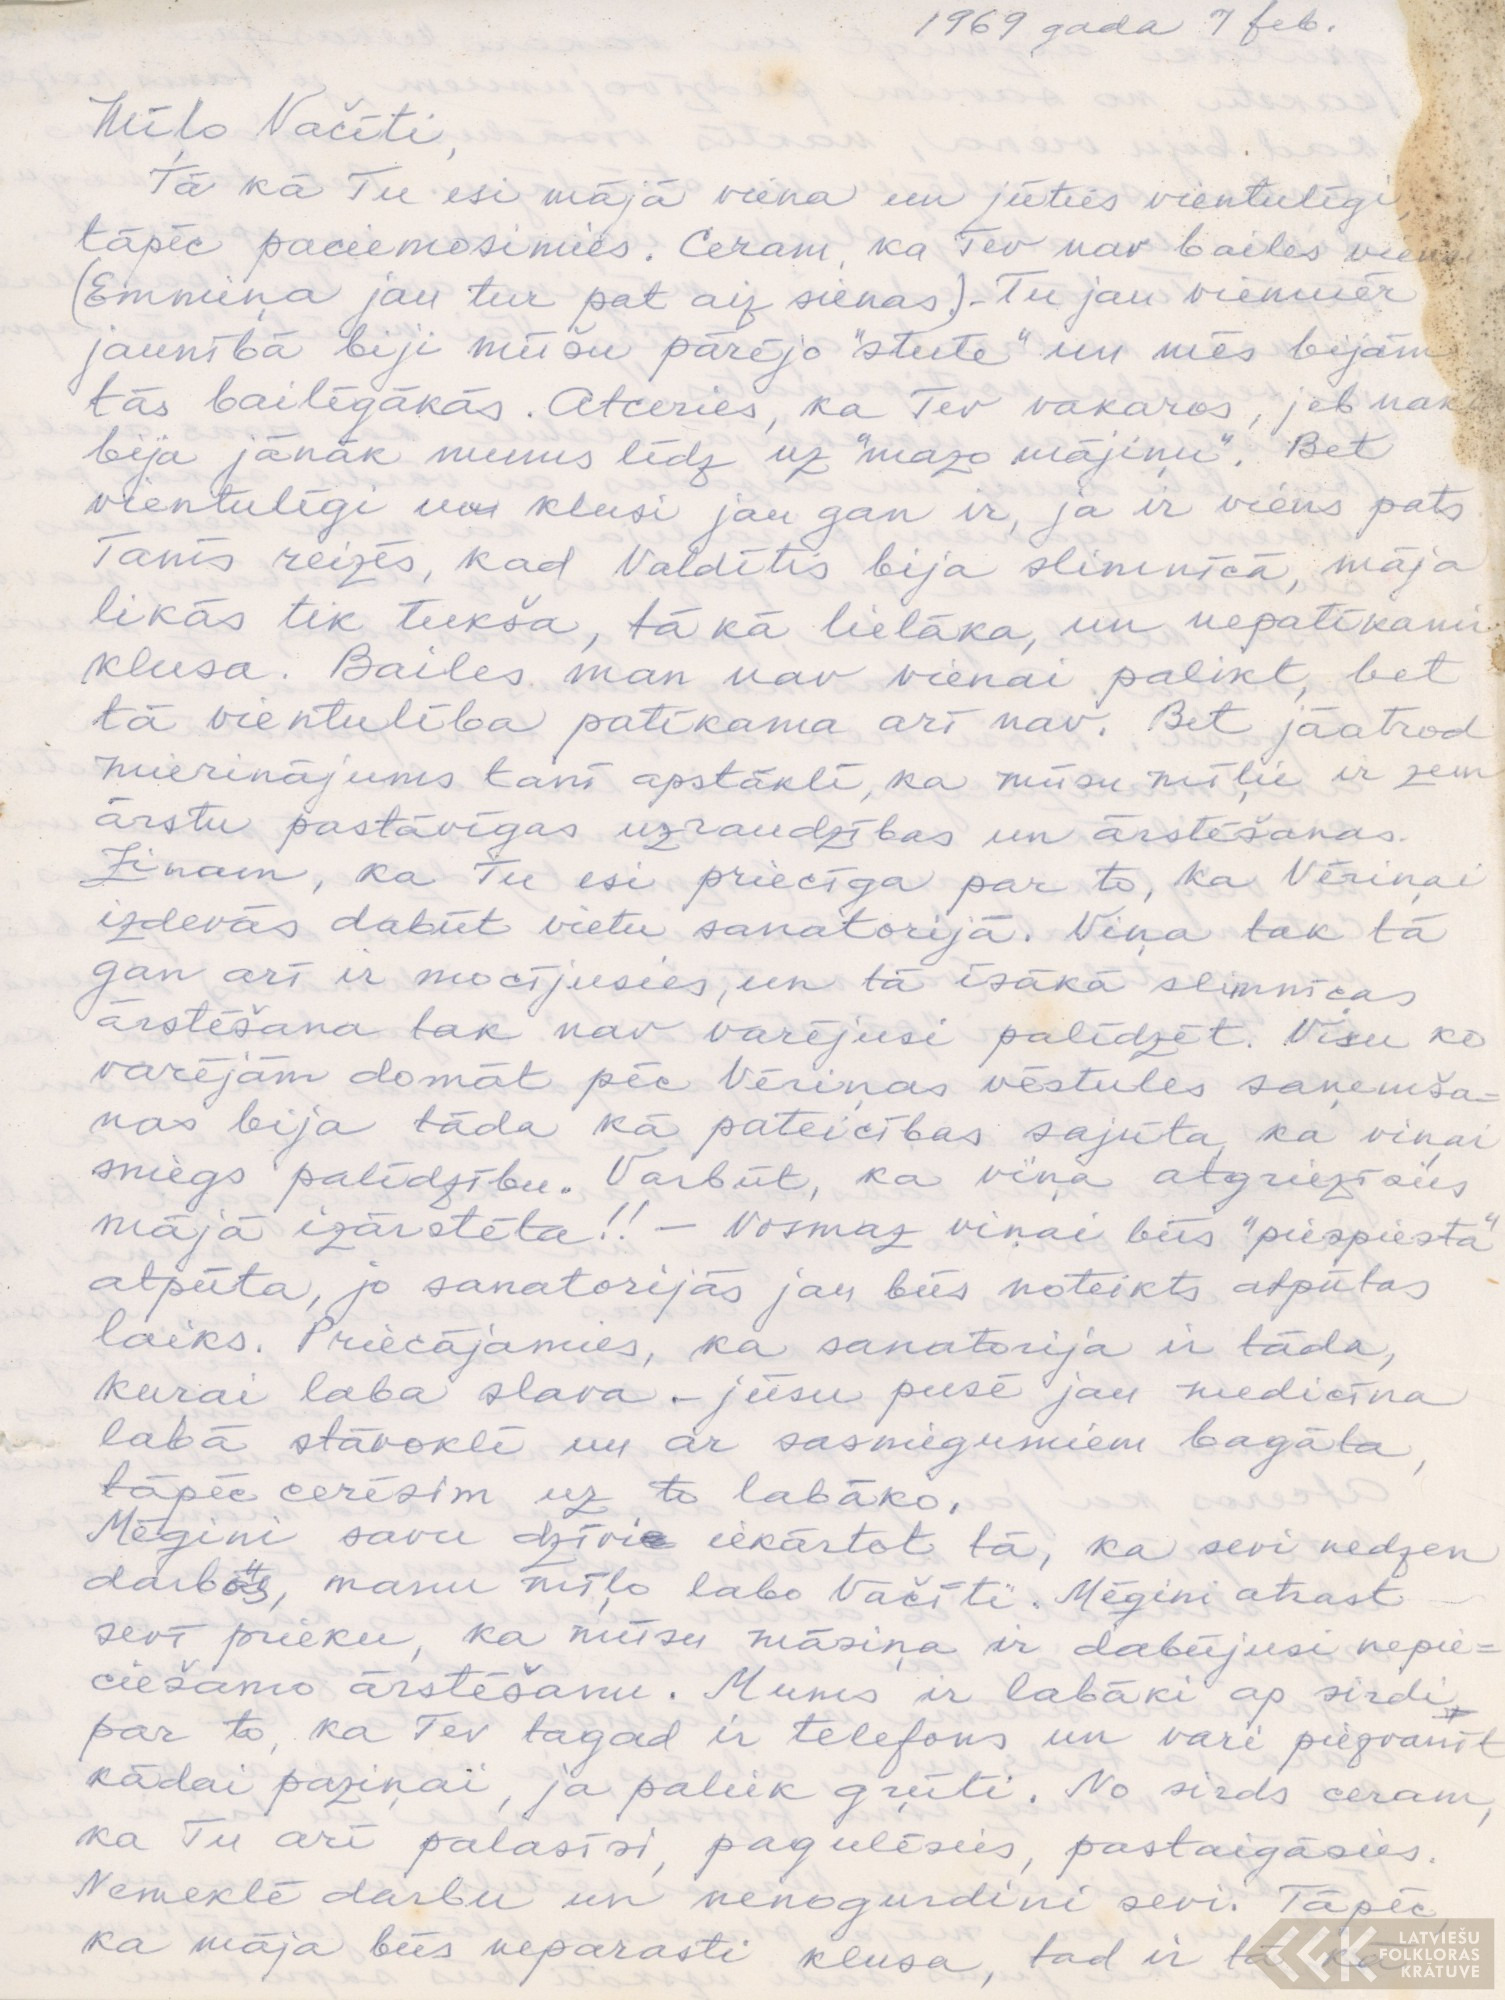 1969 gada 7 feb.
Mīļo Vačīti,
Tā kā Tu esi mājā viena un jūties vientulīgi,
tāpēc paciemosimies. Ceram, ka Tev nav bailes vienai
(Emmiņa jau tur pat aiz sienas).- Tu jau vienmēr
jaunībā biji mūsu pārējo "stute" un mēs bijām
tās bailīgākās. Atceries, ka Tev vakaros, jeb nak
bija jānāk mums līdz uz "mazo mājiņu". Bet
vientulīgi un klusi jau gan ir, ja ir viens pats
Tanīs reizēs, kad Valdītis bija slimnīcā, māja
likās tik tukša, tā kā lielāka, un nepatīkami
klusa. Bailes man nav vienai palikt, bet
tā vientulība patīkama arī nav. Bet jāatrod
mierinājums tanī apstāklī, ka mūsu mīļie ir zem
ārstu pastāvīgas uzraudzības un ārstēšanas.
Zinam, ka Tu esi priecīga par to, ka Vēriņai
izdevās dabūt vietu sanatorijā. Viņa tak tā
gan arī ir mocījusies, un tā īsākā slimnīcas
ārstēšana tak nav varējusi palīdzēt. Visu ko
varējām domāt pēc Vēriņas vēstules saņemša=
nas bija tāda kā pateicības sajūta, ka viņai
sniegs palīdzību. Varbūt, ka viņa atgriezīsies
mājā izārstēta!! - Vosmaz viņai būs "piespiesta"
atpūta, jo sanatorijās jau būs noteikts atpūtas
laiks. Priecājamies, ka sanatorija ir tāda,
kurai laba slava.- jūsu pusē jau medicīna
labā stāvoklī un ar sasniegumiem bagāta,
tāpēc cerēsim uz to labāko.
Mēgini savu dzīvi iekārtot tā, ka sevi nedzen
darbos, manu mīļo labo Vačīti. Mēgini atrast
sevī prieku, ka mūsu māsiņa ir dabūjusi nepie=
ciešamo ārstēšanu. Mums ir labāki ap sirdi,
par to, ka Tev tagad ir telefons un vari piezvanīt
kādai paziņai, ja paliek grūti. No sirds ceram,
ka Tu arī palasīsi, pagulēsies, pastaigāsies.
Nemeklē darbu un nenogurdini sevi. Tāpēc,
ka māja būs neparasti klusa, tad ir tā kā
LATVIEŠU
FOLKLORAS
KRĀTUVE